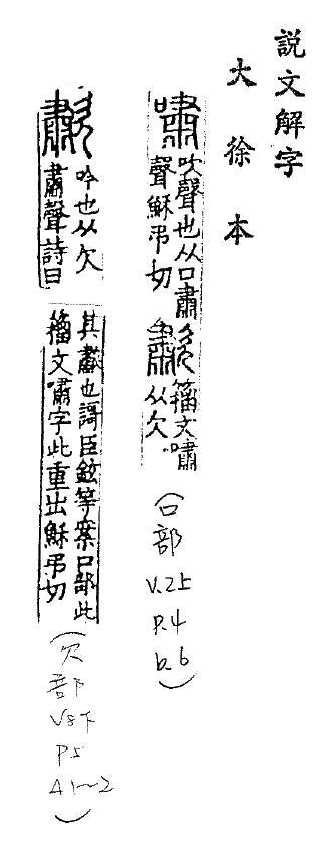 說文解字
大徐本
嘯 吹聲也从口肅
聲穌弔切 歗 籀文嘯
从欠
(口部
V.2上
P.4
b.6)
歗 吟也从欠
肅聲詩曰
其歗也謌臣鉉等案口部此
籀文嘯字此重出穌弔切
(欠部
V8下
P5
A1~2)